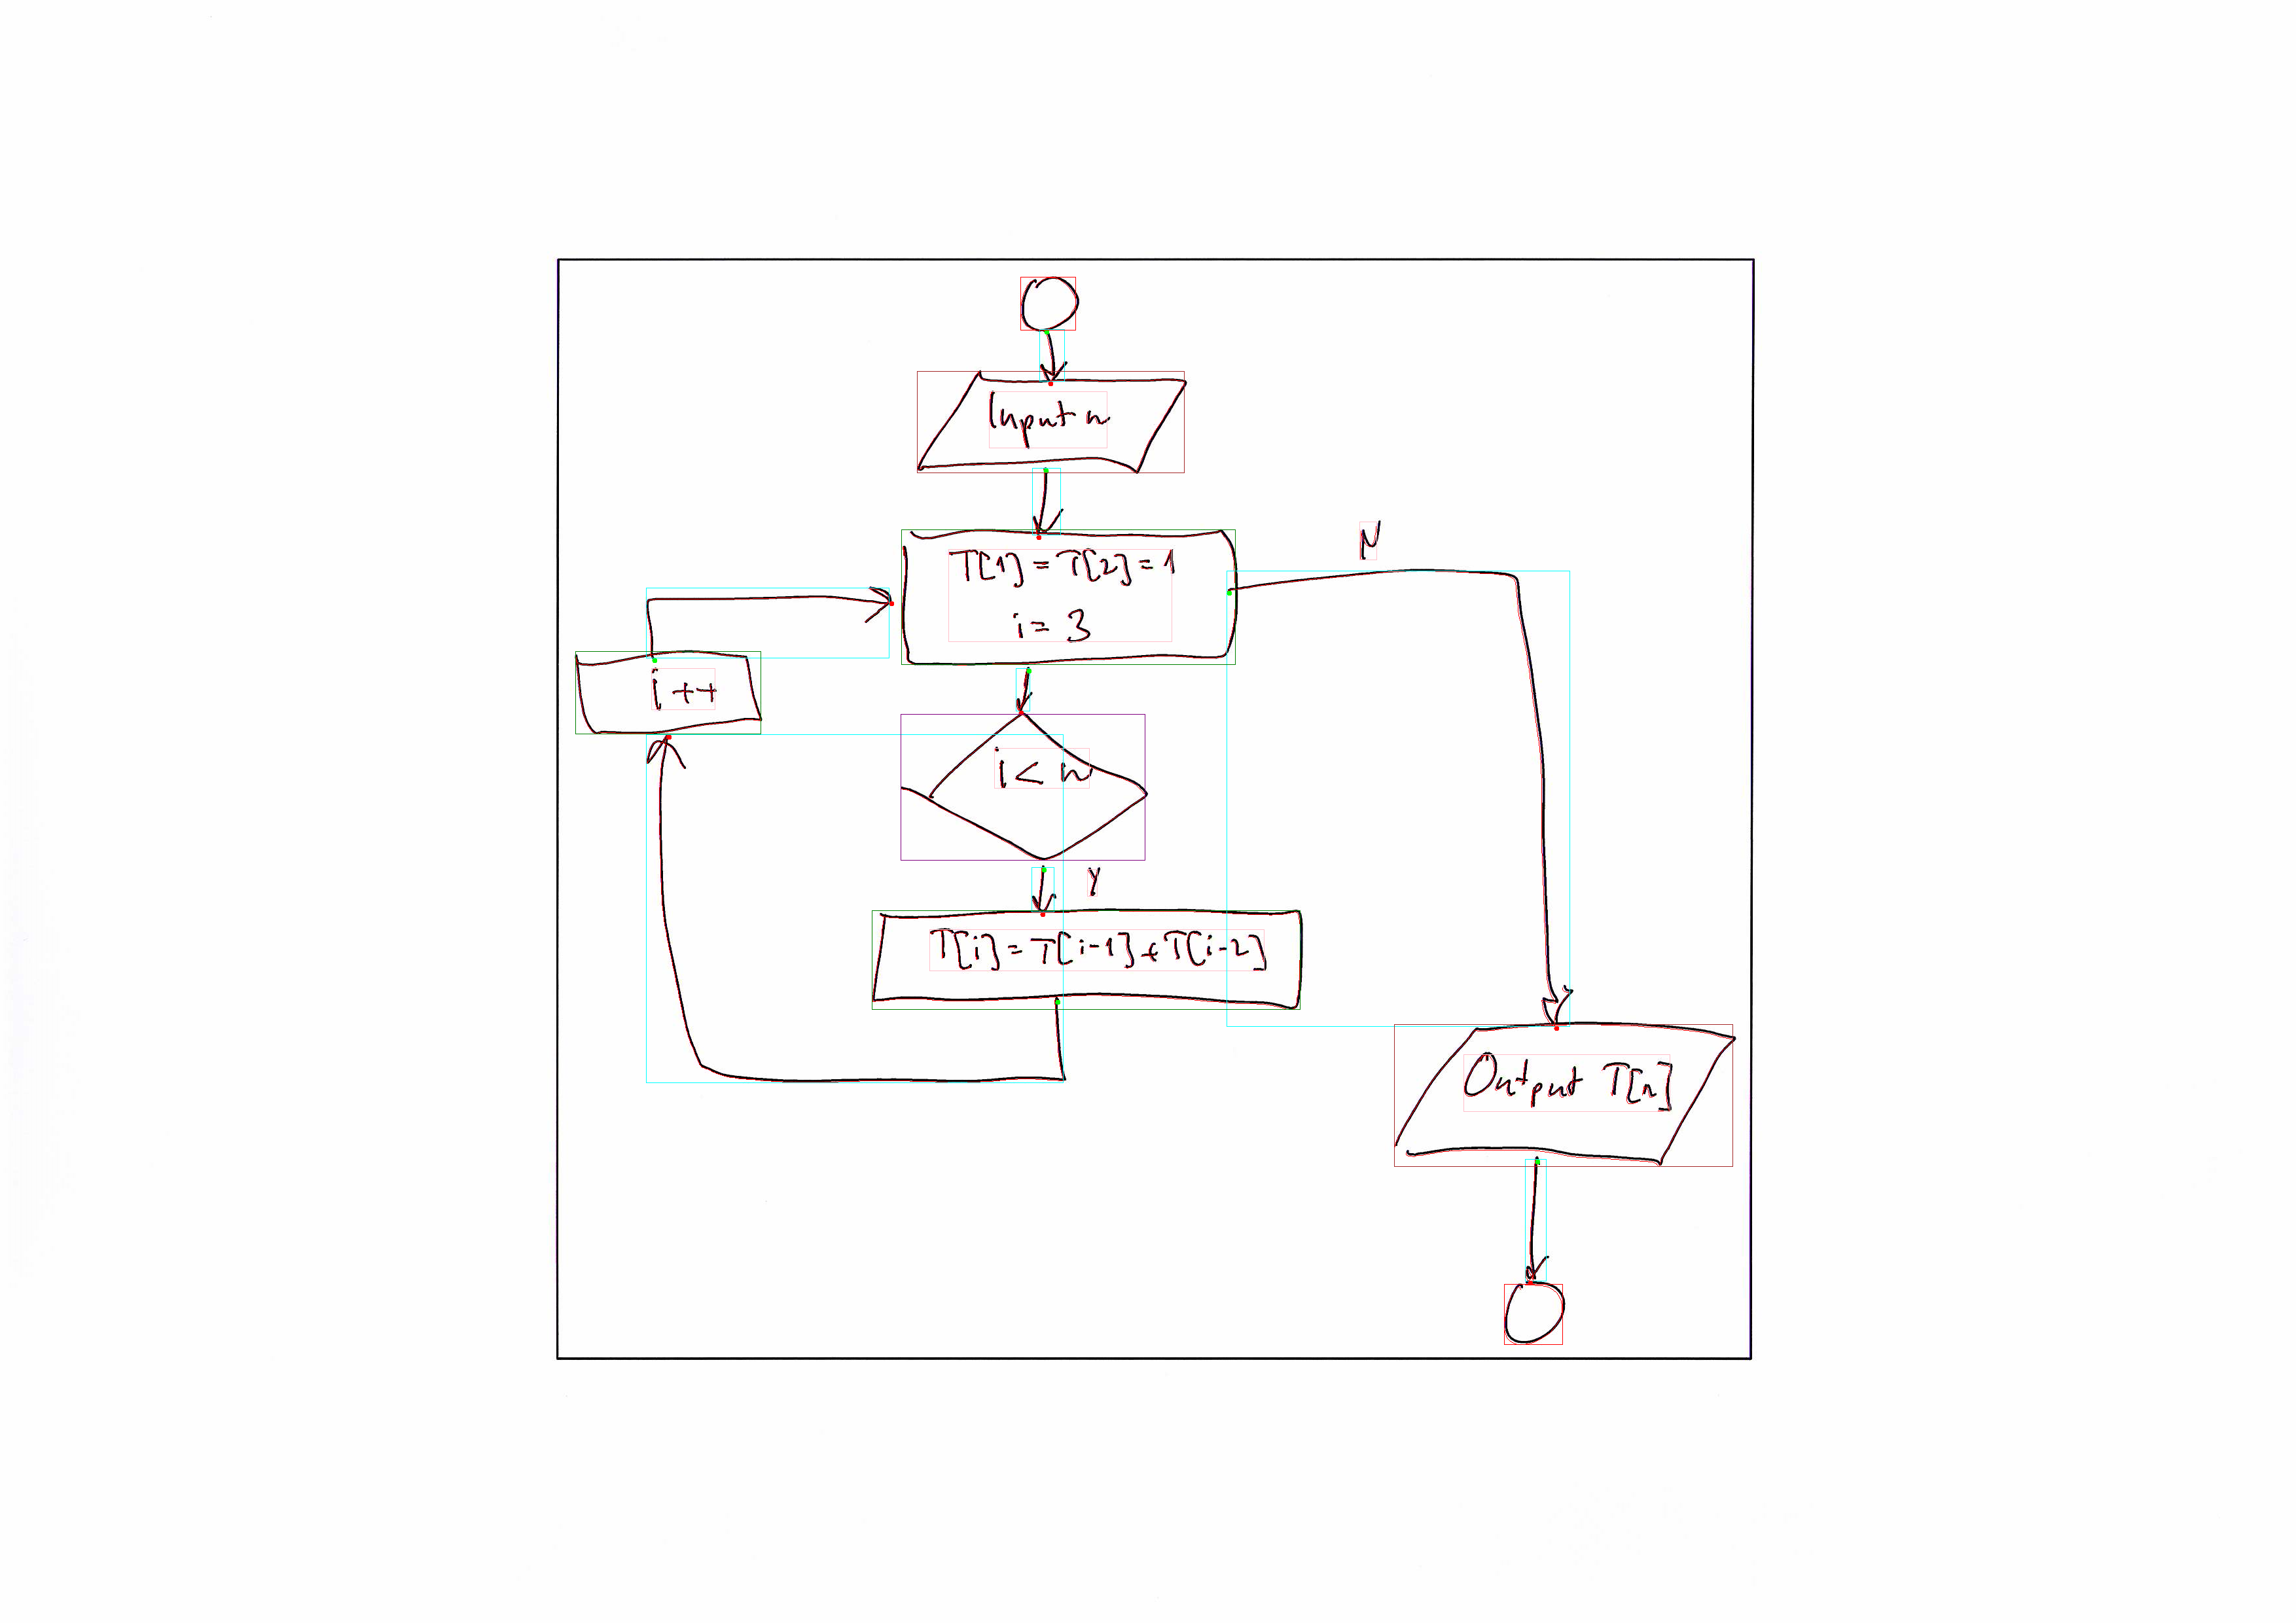 Input n
T[1] = T[2] = 1
i = 3
N
i ++
i < n
Y
T[i] = T[i-1] + T[i-2]
Output T[n]